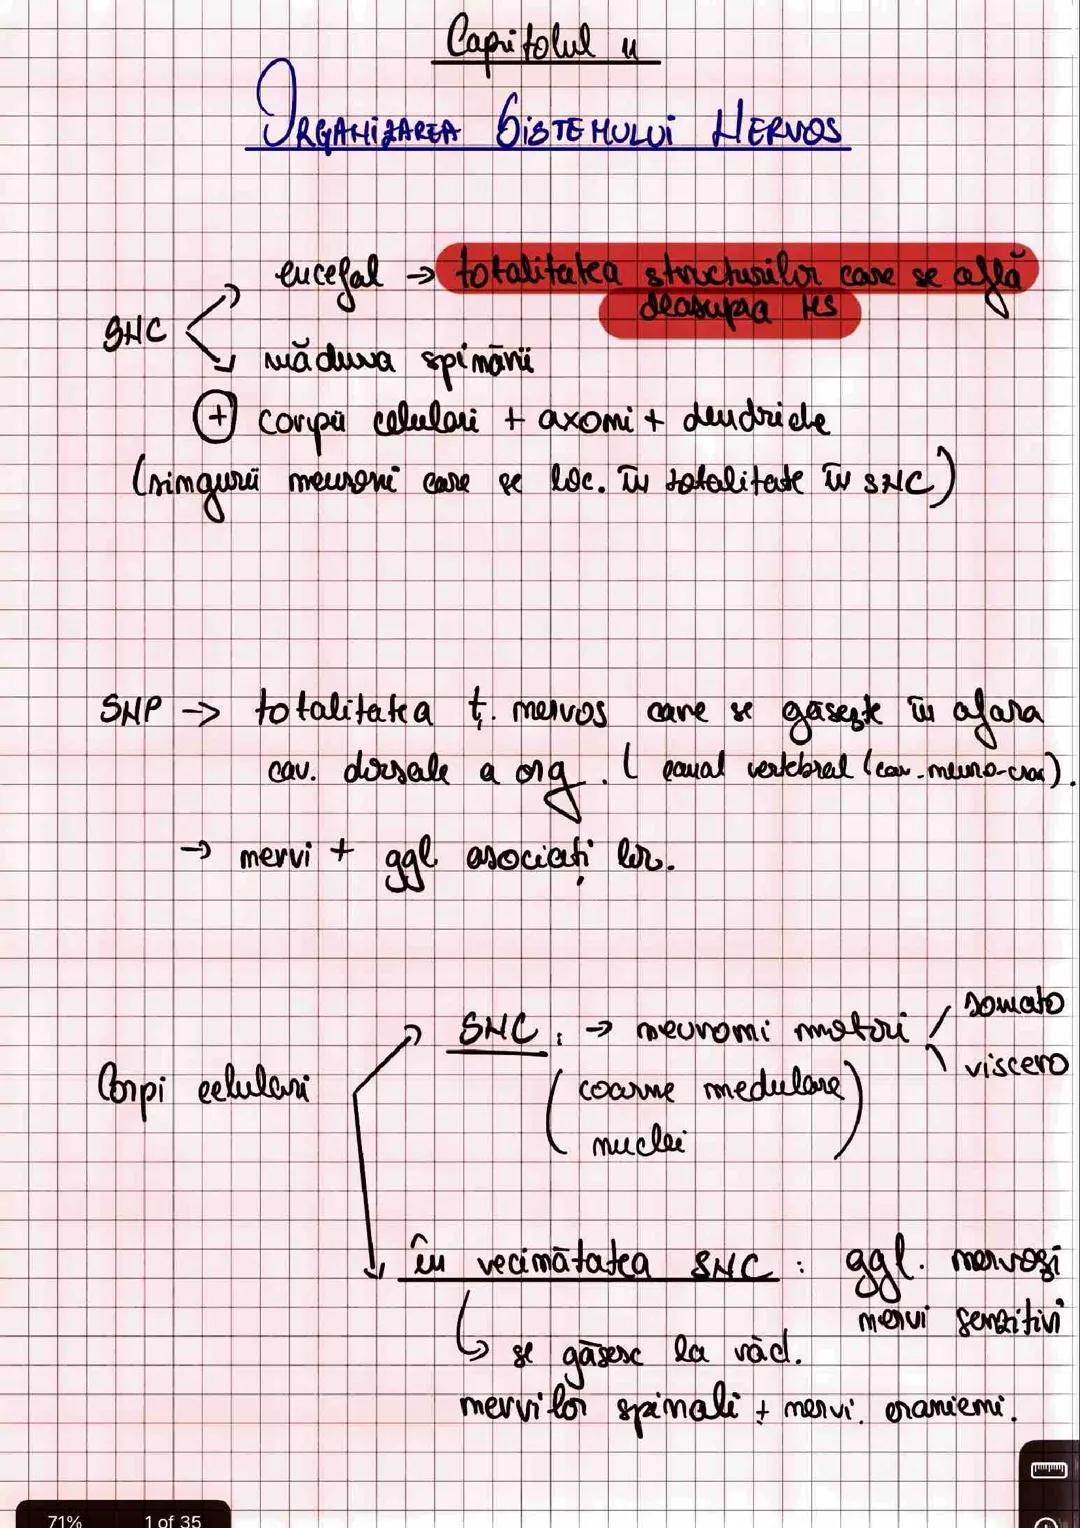 Capitolul 4
ORGANIZAREA SISTEMULUI NERVOS
encefal → totalitatea structurilor care se află
deasupra MS
SNC
măduva spinării
+ corpii celulari + axoni + dendrite
(singurii neuroni care se loc. în totalitate în SNC)
SNP → totalitatea ț. nervos care se găsește în afara
cav. dorsale a org. ( canal vertebral (cav. neuro-cran).
→ nervi + ggl asociați lor.
SNC : → neuroni motori
somato
viscero
Corpi celulari
(coarne medulare
nuclei)
în vecinătatea SNC : ggl. nervoși
nervi senzitivi
↳ se găsesc la răd.
nervilor spinali + nervi. cranieni.
71% 1 of 35